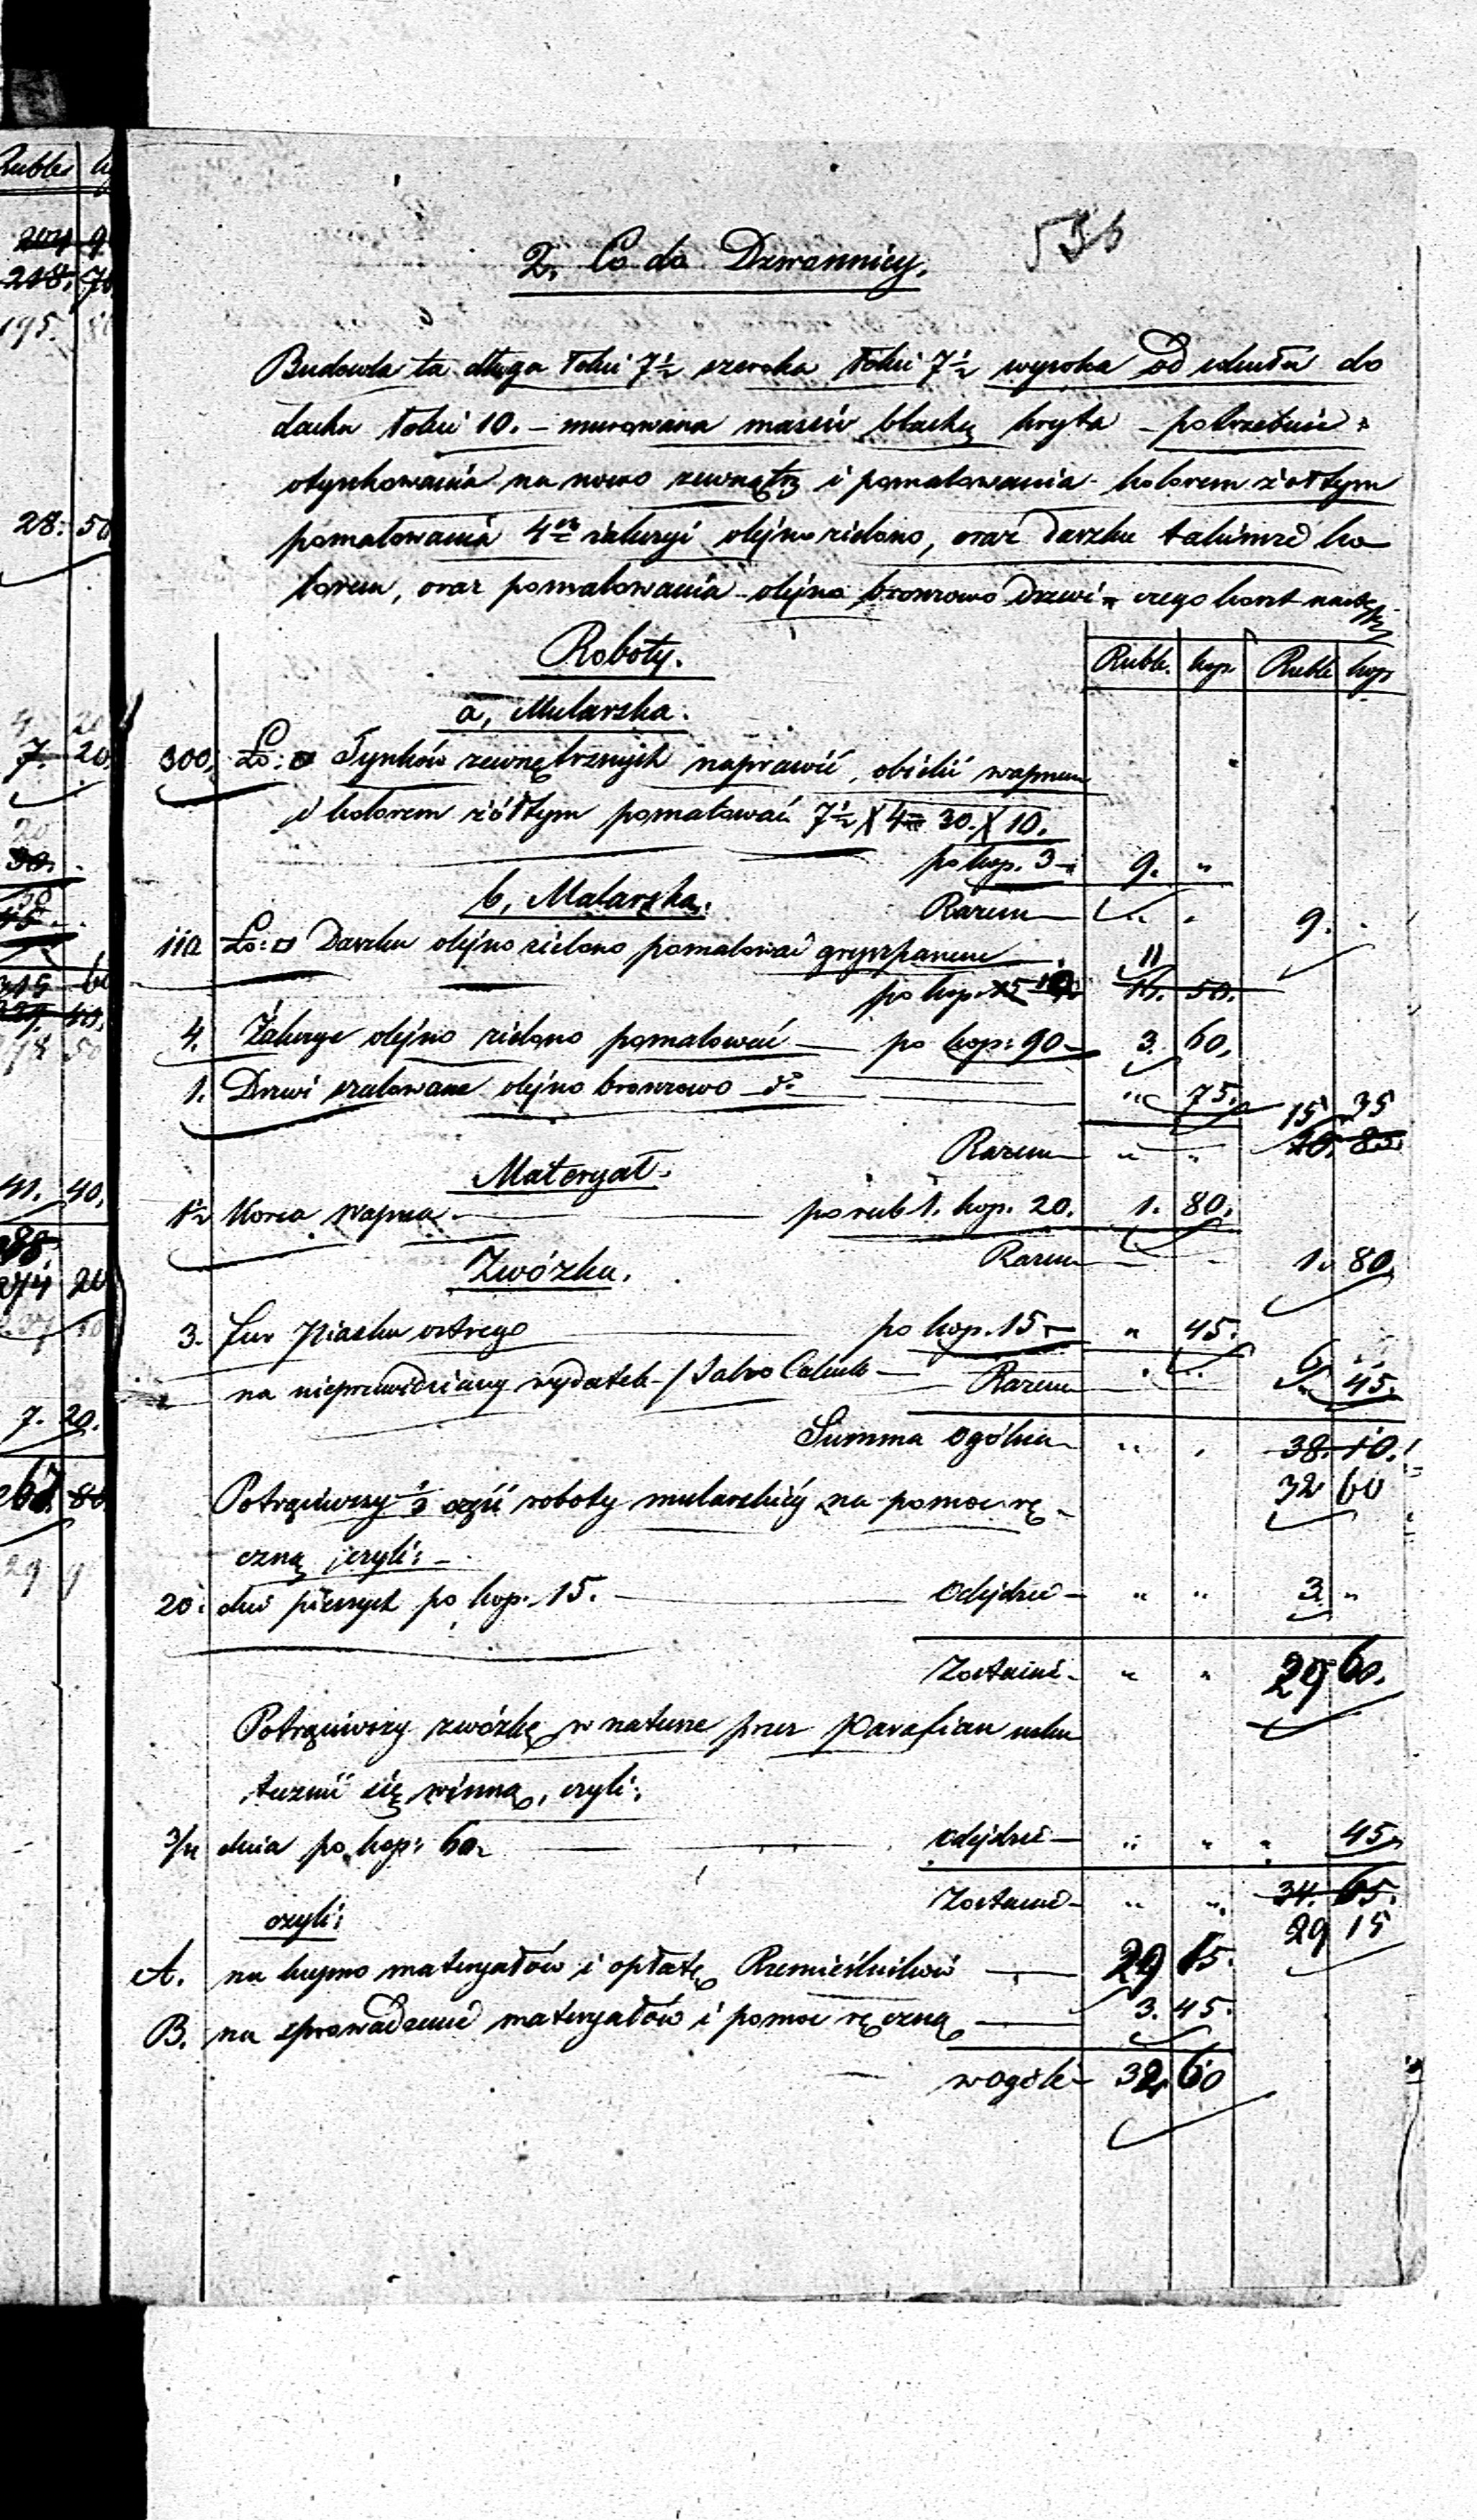 Ruble
204 9
218. 70
195.
28. 50
4 20
7. 20
20
30.
315 60
50
41. 40.
88
274 20
7. 20.
29
536
2, Co do Dzwonnicy.
Budowla ta długa łokci 7½ szeroka łokci 7½ wysoka od cokułu do
dachu łokci 10. – murowana massiv blachą kryta – potrzebuie
otynkowania na nowo zewnątrz i pomalowania kolorem żołtym
pomalowania 4ch żaluzyi olejno zielono, oraz daszku takimże ko-
lorem, oraz pomalowania olejno bronzowo drzwi – czego koszt nastę
Rubli. kop. Rubli kop
Roboty.
a, Mularska.
300. Ło: □ Tynków zewnętrznych naprawić, obielić wapnem
i kolorem żółtym pomalować 7½ X 4 = 30. X 10.
po kop. 3 – 9. "
Razem 9.
b, Malarska.
110 Ło: □ Daszku olejno zielono pomalować gryszpanem
po kop. 15 10 11 16. 50.
4. Żaluzye olejno zielono pomalować — po kop: 90 – 3. 60.
1. Drzwi szalowane olejno bronzowo – do – " 75.
Razem " " 15 35
20. 85.
Materyał.
1½ Korca wapna — po rub 1. kop. 20. 1. 80.
Razem 1. 80.
Zwózka.
3. fur piasku ostrego — po kop. 15 – " 45.
na nieprzewidziany wydatek – / Salvo Calculo – Razem 6 45.
Summa ogólna " " 38. 10.
32 60
Potrąciwszy ⅓ część roboty mularskiéj na pomoc rę-
czną czyli: –
20. dni pieszych po kop. 15. — odejdzie – " " 3. "
Zostanie – " " 29 60.
Potrąciwszy zwózkę w naturze przez Parafian usku
tecznić się winną, czyli:
3/4 dnia po kop: 60. — odejdzie – " " " 45.
Zostanie – " " 34. 65.
29 15
czyli:
A. na kupno materyałów i opłatę Rzemieślników — 29 15.
B. na sprowadzenie materyałów i pomoc ręczną — 3. 45.
wogóle – 32, 60